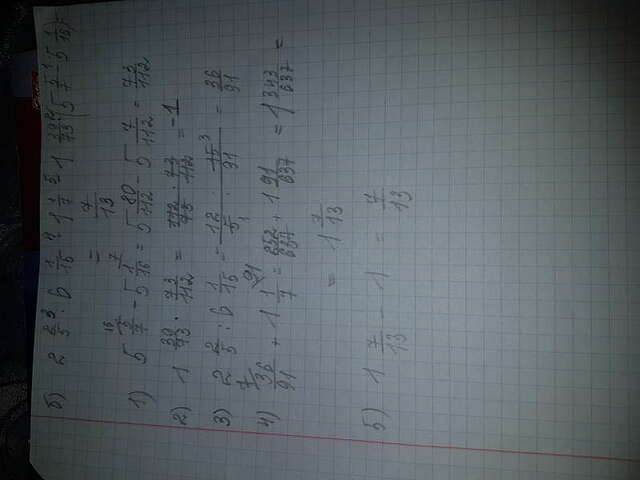 б) 2 2/5 : 6 1/15 + 1 1/7 - 1 39/73 · (5 5/7 - 5 1/16) =
= 7/13
1) 5 5/7 - 5 1/16 = 5 80/112 - 5 7/112 = 73/112
2) 1 39/73 · 73/112 = 112/73 · 73/112 = 1
3) 2 2/5 : 6 1/15 = 12/5 · 15/91 = 36/91
4) 36/91 + 1 1/7 = 252/637 + 1 91/637 = 1 343/637 =
= 1 7/13
5) 1 7/13 - 1 = 7/13